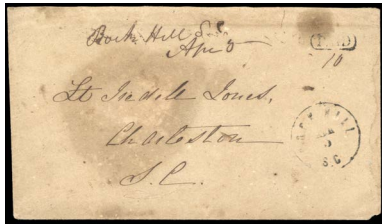 Rock Hill S.C.
Apr 5
PAID
10
Lt Iredell Jones,
Charleston
S.C.
ROCK HILL
S.C